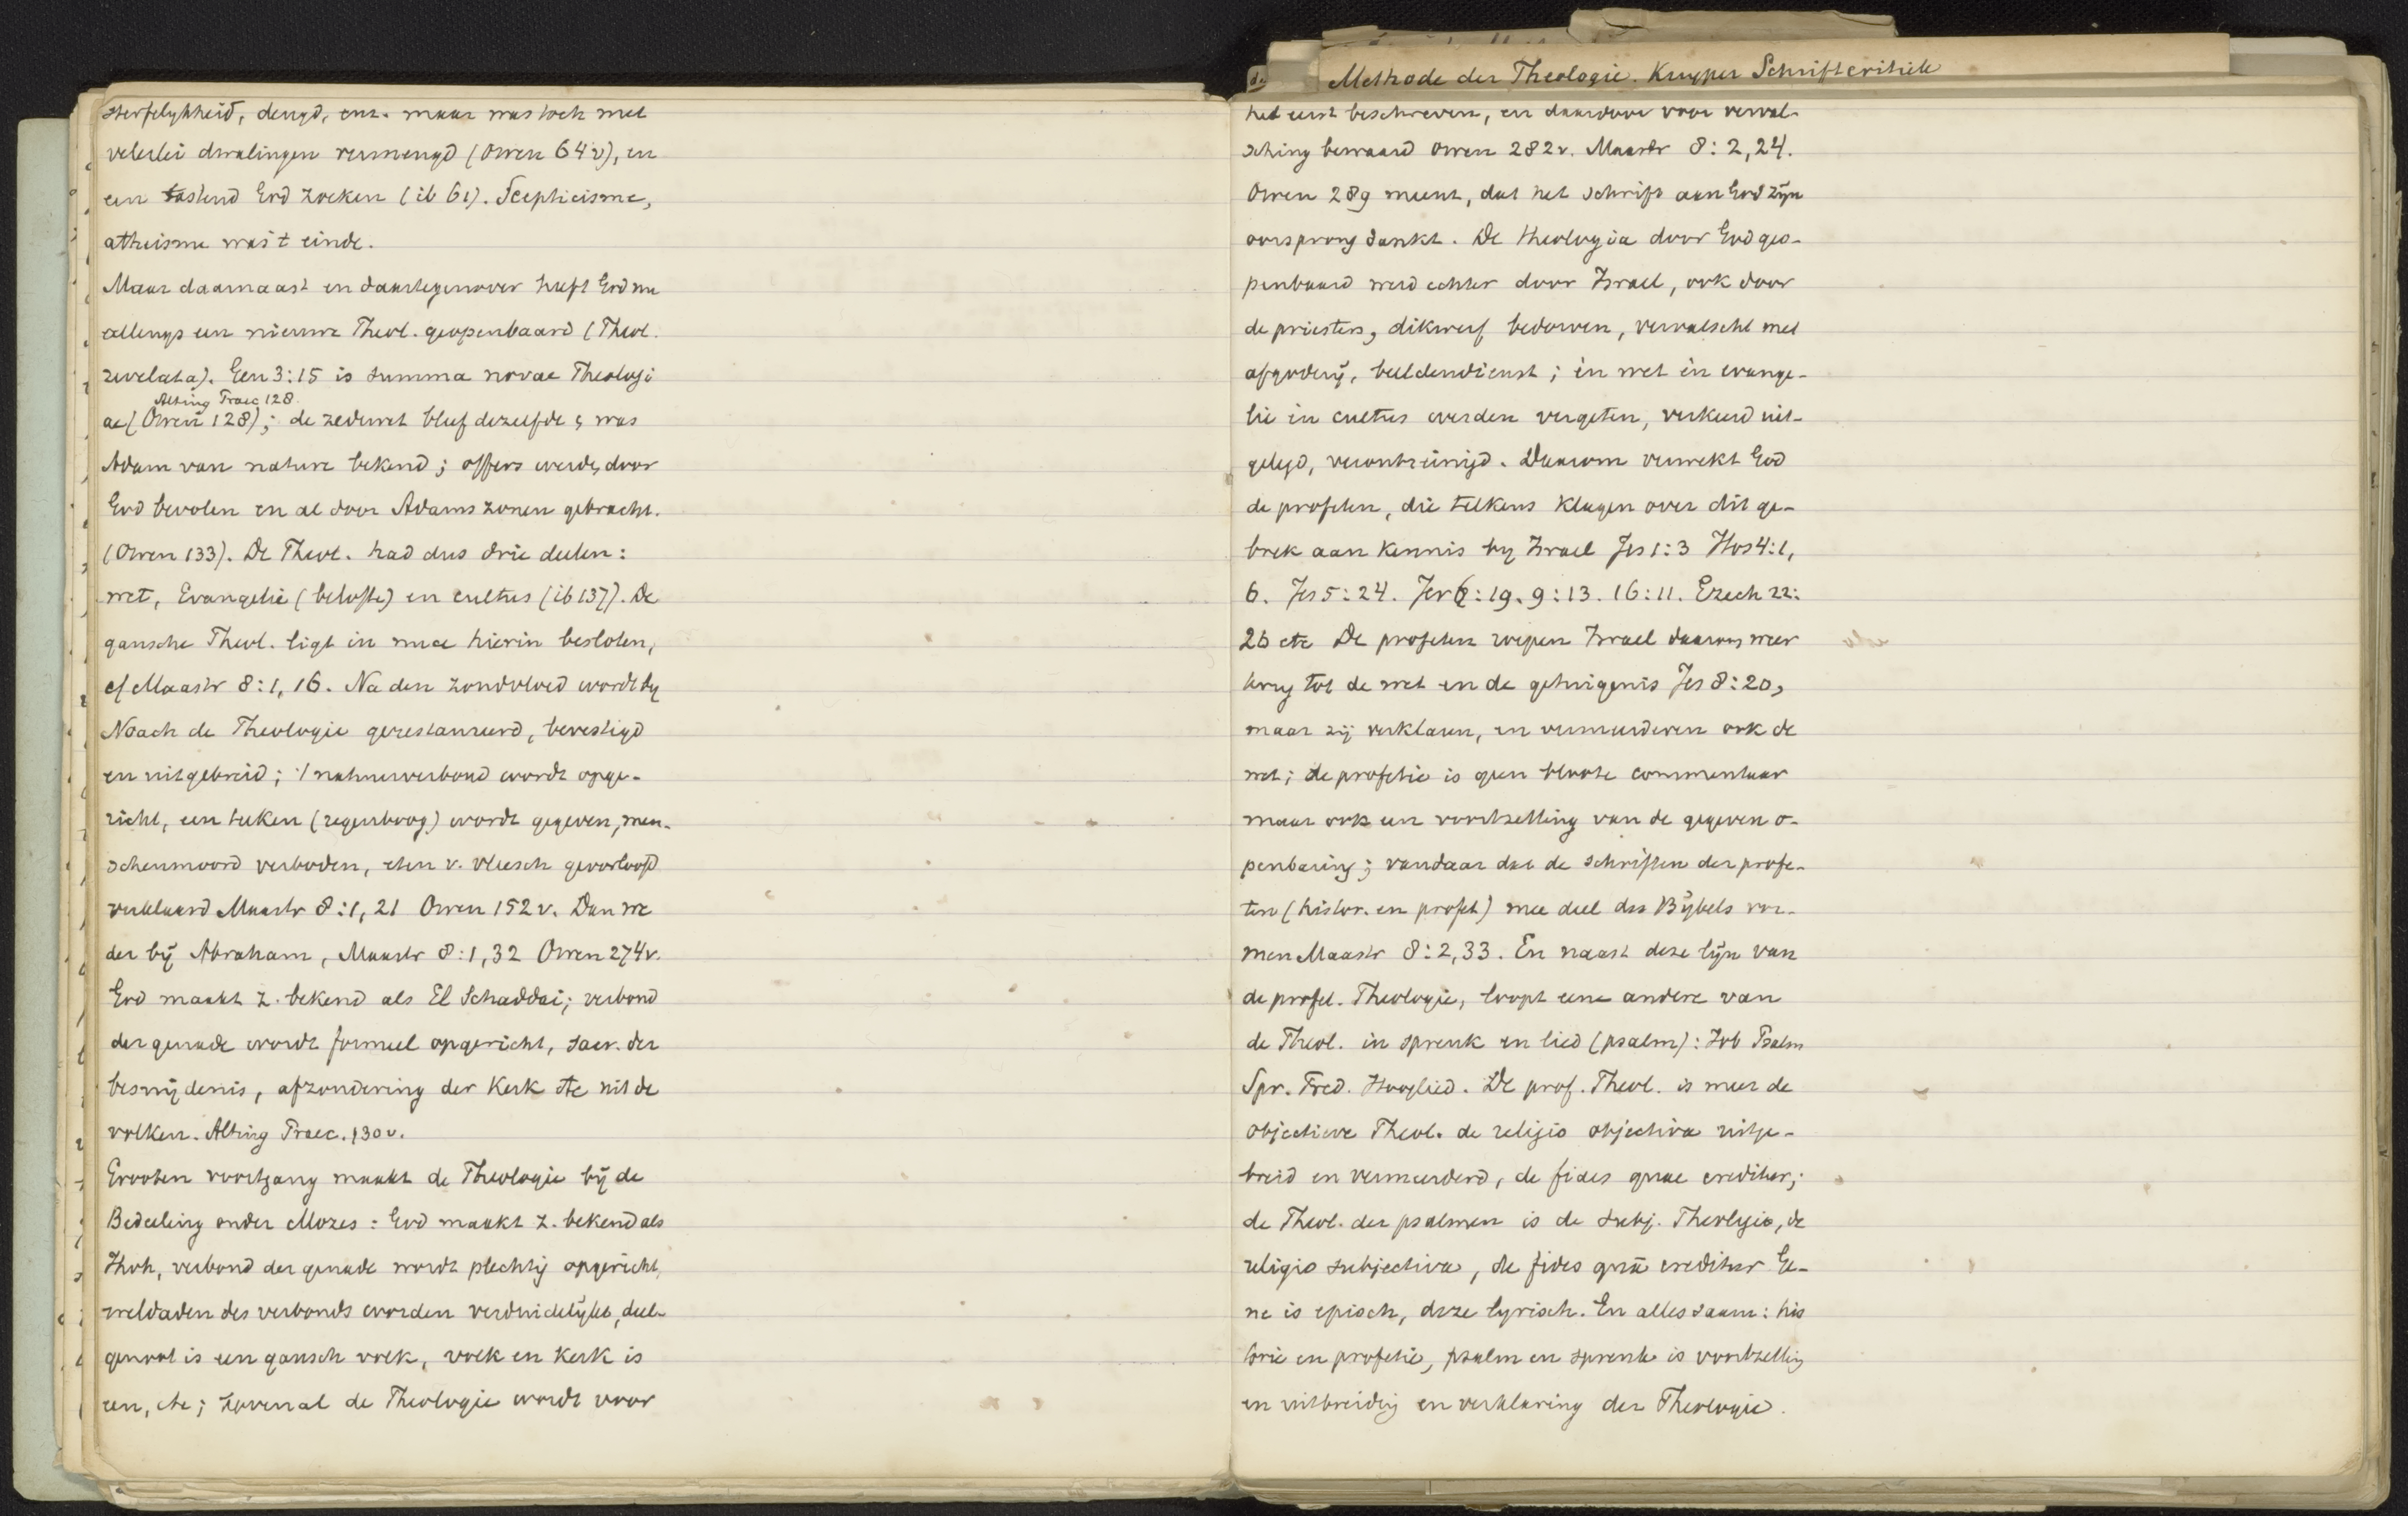 sterfelykheid, deugd, enz. maar was toch met
velerlei dwalingen vermengd (Owen 64v), en
een tastend God zoeken (ib 61). Scepticisme,
atheisme was 't einde.
Maar daarnaast en daartegenover heeft God nu
allengs een nieuwe Theol. geopenbaard (Theol.
revelata). Gen 3:15 is summa novae Theologi
Alting Praec 128
ae (Owen 128); de zedewet bleef dezelfde & was
Adam van nature bekend; offers werden door
God bevolen en al door Adams zonen gebracht.
(Owen 133). De Theol. had dus drie deelen:
wet, Evangelie (belofte) en cultus (ib 137). De
gansche Theol. ligt in nuce hierin besloten,
cf Maastr 8:1, 16. Na den zondvloed wordt by
Noach de Theologie gerestaureerd, bevestigd
en uitgebreid; 't natuurverbond wordt opge-
richt, een teeken (regenboog) wordt gegeven, men-
schenmoord verboden, eten v. vleesch geoorloofd
verklaard Maastr 8:1, 21 Owen 152v. Dan we
der bij Abraham, Maastr 8:1, 32 Owen 274v.
God maakt z. bekend als El Schaddai; verbond
der genade wordt formeel opgericht, sacr. der
besnijdenis, afzondering der Kerk etc uit de
volken. Alting Praec. 130v.
Grooten voortgang maakt de Theologie bij de
Bedeeling onder Mozes: God maakt z. bekend als
Jhvh, verbond der genade wordt plechtig opgericht,
weldaden des verbonds worden verduidelijkt, deel-
genoot is een gansch volk, volk en Kerk is
een, etc; bovenal de Theologie wordt voor
Methode der Theologie. Kuyper Schriftcritiek
het eerst beschreven, en daardoor voor verval-
sching bewaard Owen 282v. Maastr 8:2, 24.
Owen 289 meent, dat het schrift aan God zijn
oorsprong dankt. De theologia door God geo-
penbaard werd echter door Israel, ook door
de priesters, dikwerf bedorven, vervalscht met
afgoderij, beeldendienst; en wet en evange-
lie en cultus werden vergeten, verkeerd uit-
gelegd, verontreinigd. Daarom verwekt God
de profeten, die telkens klagen over dit ge-
brek aan Kennis by Israel Jes 1:3 Hos 4:1,
6. Jes 5:24. Jer 6:19. 9:13. 16:11. Ezech 22:
26 etc De profeten roepen Israel daarom weer
terug tot de wet en de getuigenis Jes 8:20,
maar zij verklaren, en vermeerderen ook de
wet; de profetie is geen bloote commentaar
maar ook een voortzetting van de gegeven o-
penbaring; vandaar dat de schriften der profe-
ten (histor. en profet) mee deel des Bijbels vor-
men Maastr 8:2, 33. En naast deze lijn van
de profet. Theologie, loopt eene andere van
de Theol. in spreuk en lied (psalm): Job Psalm
Spr. Pred. Hooglied. De prof. Theol. is meer de
objectieve Theol. de religio objectiva uitge-
breid en vermeerderd, de fides quae creditur;
de Theol. der psalmen is de subj. Theologie, de
religio subjectiva, de fides quâ creditur Ge-
ne is episch, deze lyrisch. En alles saam: his
torie en profetie, psalm en spreuk is voortzetting
en uitbreiding en verklaring der Theologie.